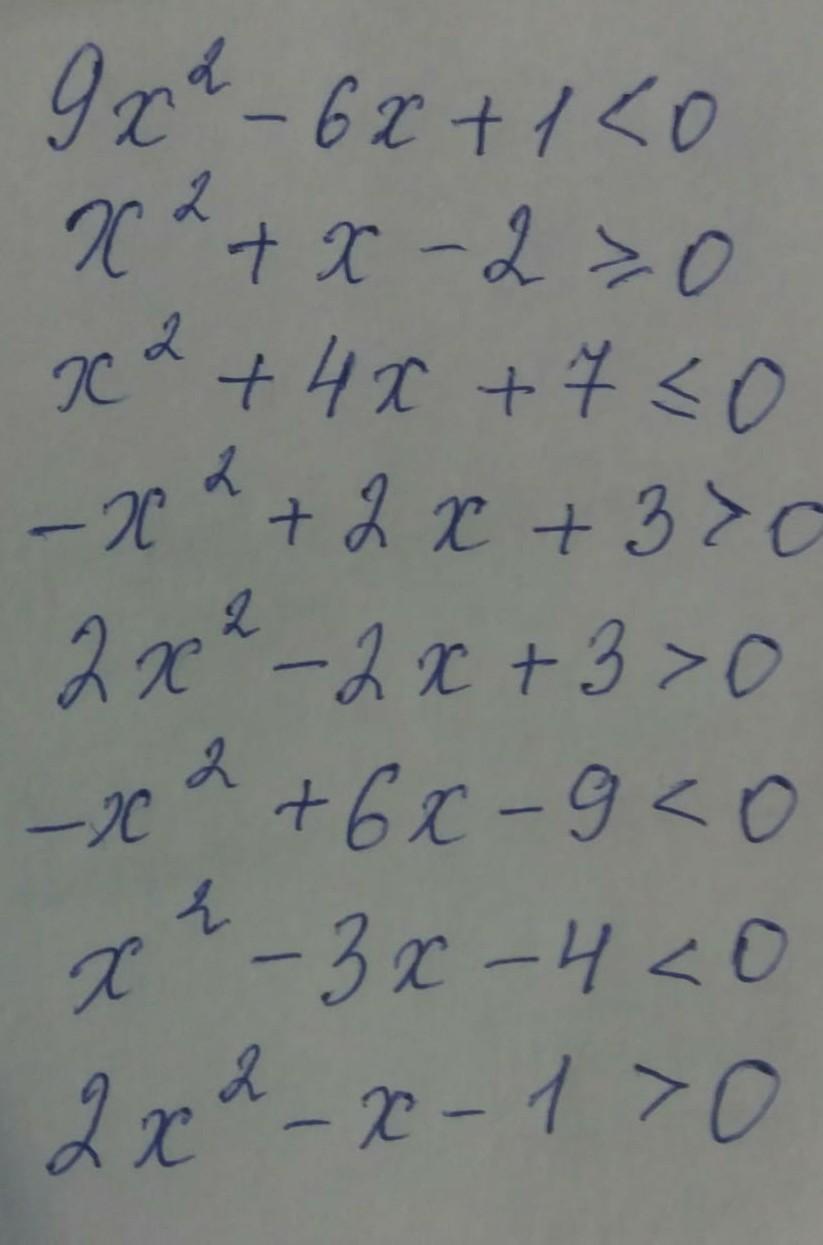 9x² - 6x + 1 < 0
x² + x - 2 ≥ 0
x² + 4x + 7 ≤ 0
-x² + 2x + 3 > 0
2x² - 2x + 3 > 0
-x² + 6x - 9 < 0
x² - 3x - 4 < 0
2x² - x - 1 > 0